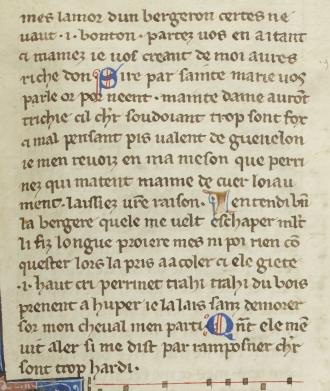 mes lamor dun bergeron certes ne
vaut · i · bouton · partez vos en a itant
ci mamiez ie vos creant de moi aures
riche don Sire par sainte marie vos
parle or por neent · mainte dame auront
trichie cil chr soudoiant trop sont fox
ci mal pensant pis valent de guenelon
ie men revoiz en ma meson que perri
nez qui matent maime de cuer loiau
ment · laissiez vre raison · I entendi bn
la bergere quele me velt eschaper mlt
li fiz longue proiere mes ni poi rien con
quester lors la pris a acoler ci ele giete
· i · haut cri perrinet traihi traihi du bois
prenent a huper ie la lais sanz demorer
sor mon cheval men parti Qnt ele men
vit aler si me dist par ramposner chr
sont trop hardi ·